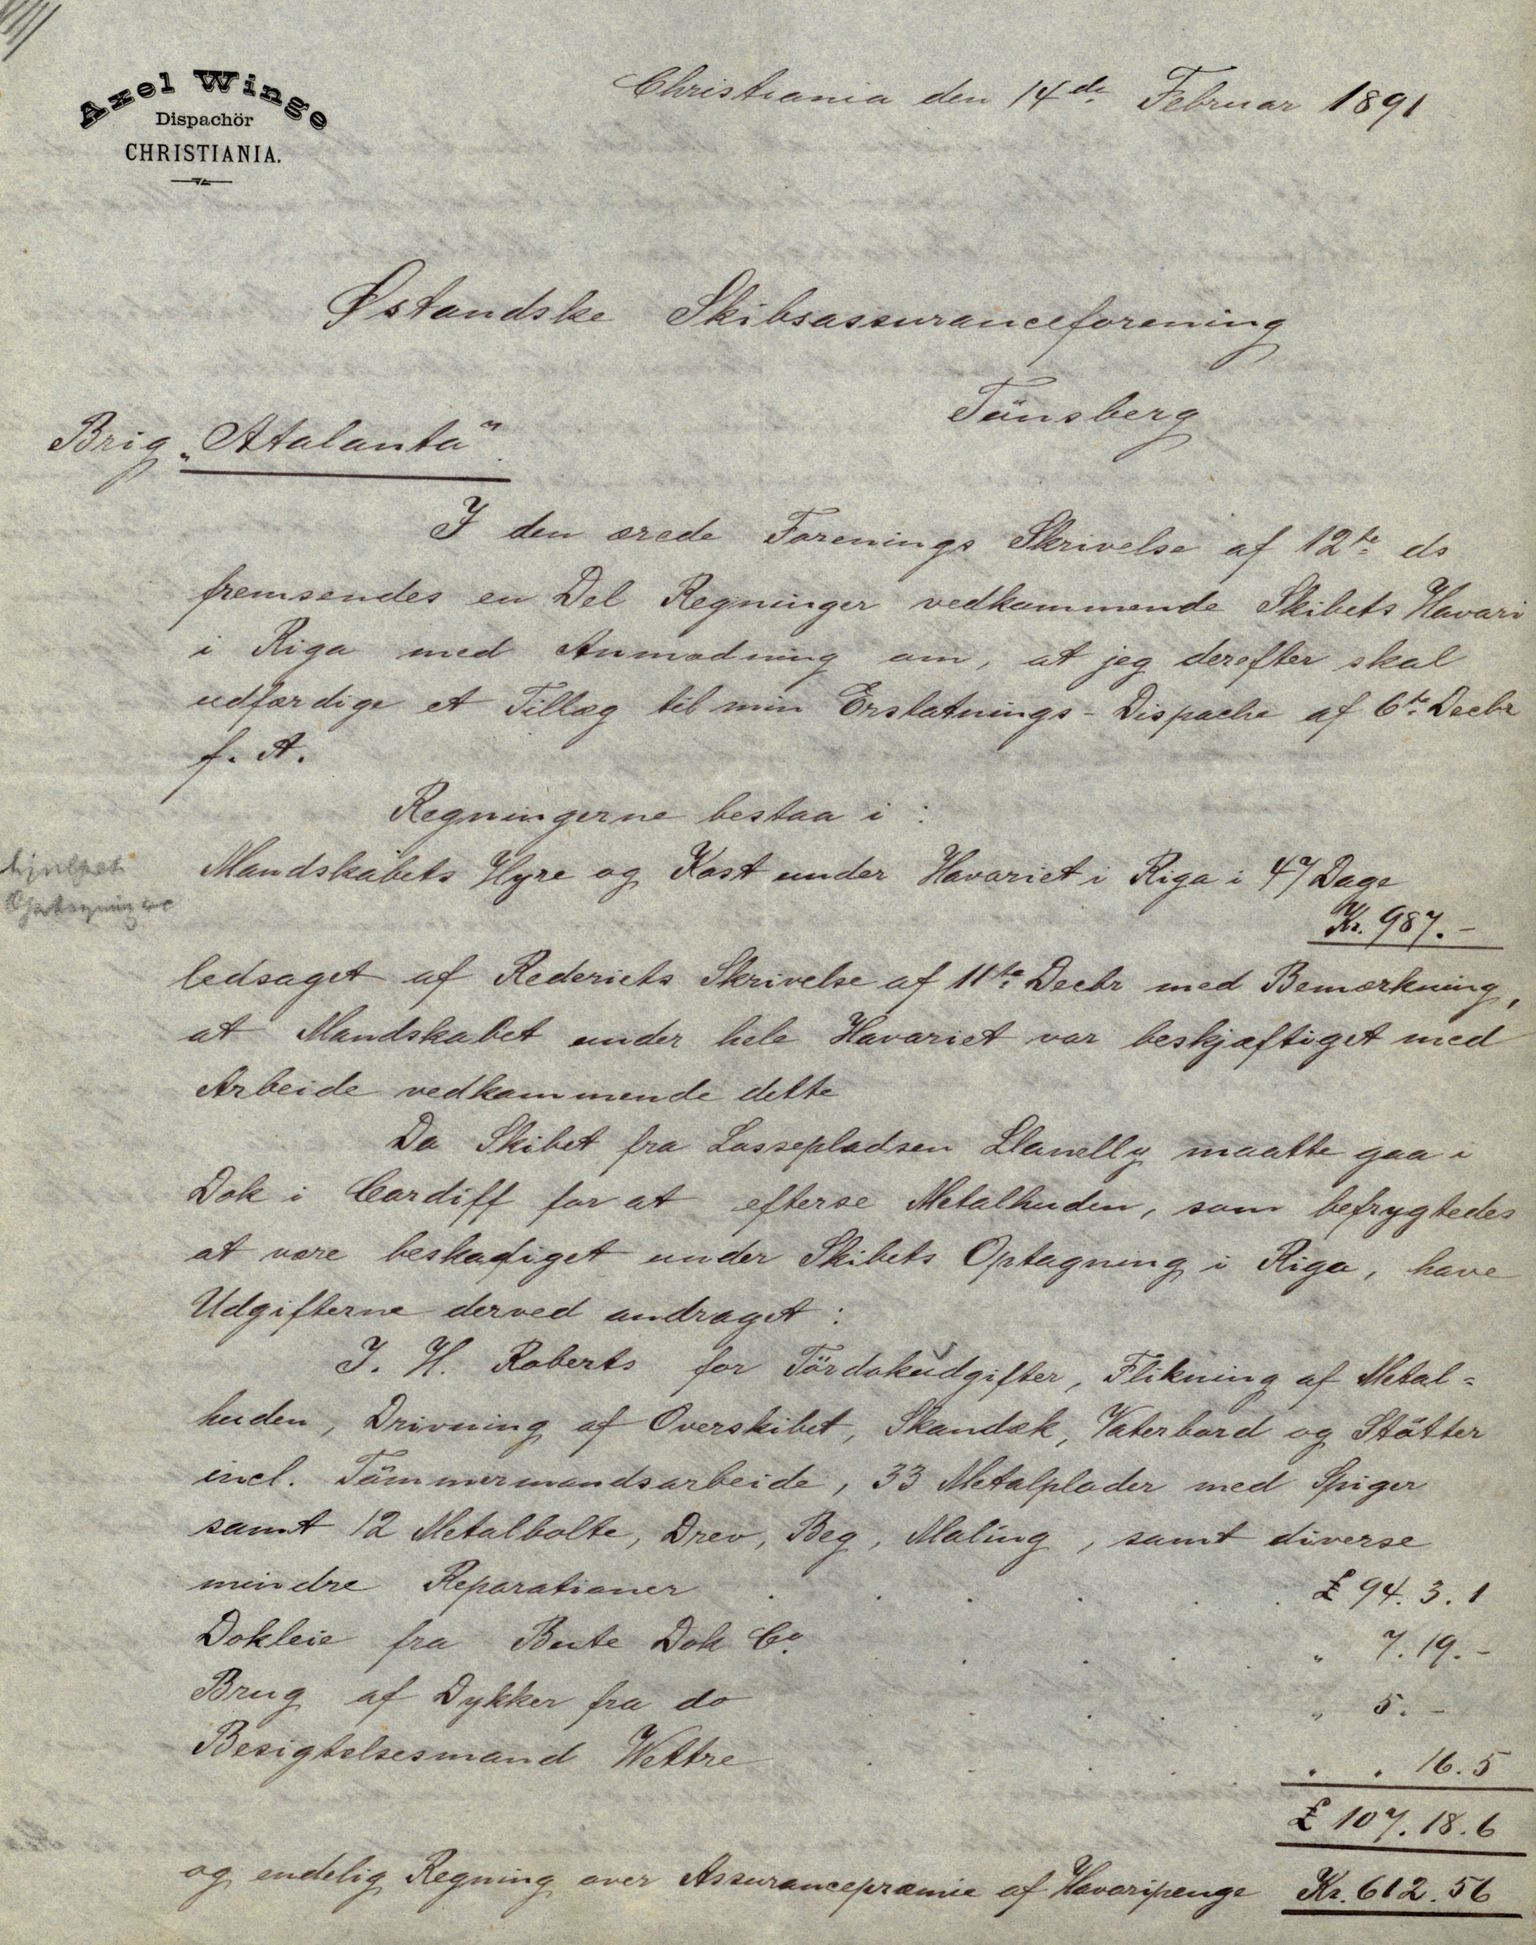 Axel Winge
Dispachör
CHRISTIANIA.
Christiania den 14de Februar 1891
Østandske Skibsassuranceforening
Tönsberg
Brig „Atalanta"
I den ærede Forenings Skrivelse af 12te ds
fremsendes en Del Regninger vedkommende Skibets Havari
i Riga med Anmodning om, at jeg derefter skal
udfærdige et Tillæg til min Erstatnings-Dispache af 6te Decbr
f. A.
Regningerne bestaa i :
Mandskabets Hyre og Kost under Havariet i Riga i 47 Dage
Kr. 987.-
ledsaget af Rederiets Skrivelse af 11te Decbr med Bemærkning,
at Mandskabet under hele Havariet var beskjæftiget med
Arbeide vedkommende dette
Da Skibet fra Lossepladsen Llanelly maatte gaa i
Dok i Cardiff for at efterse Metalhuden, som befrygtedes
at være beskadiget under Skibets Optagning i Riga, have
Udgifterne derved andraget :
J. H. Roberts for Tördokudgifter, Flikning af Metal=
huden, Drivning af Overskibet, Skandæk, Vaterbord og Stötter
incl. Tömmermandsarbeide, 33 Metalplader med Spiger
samt 12 Metalbolte, Drev, Beg, Maling, samt diverse
mindre Reparationer . . . . . . £ 94. 3. 1
Dokleie fra Bute Dok Co. . . . . „ 7. 19. -
Brug af Dykker fra do . . . . „ 5. -
Besigtelsesmand Wettre . . . . „ „ 16. 5
£ 107. 18. 6
og endelig Regning over Assurancepræmie af Havaripenge Kr. 612. 56